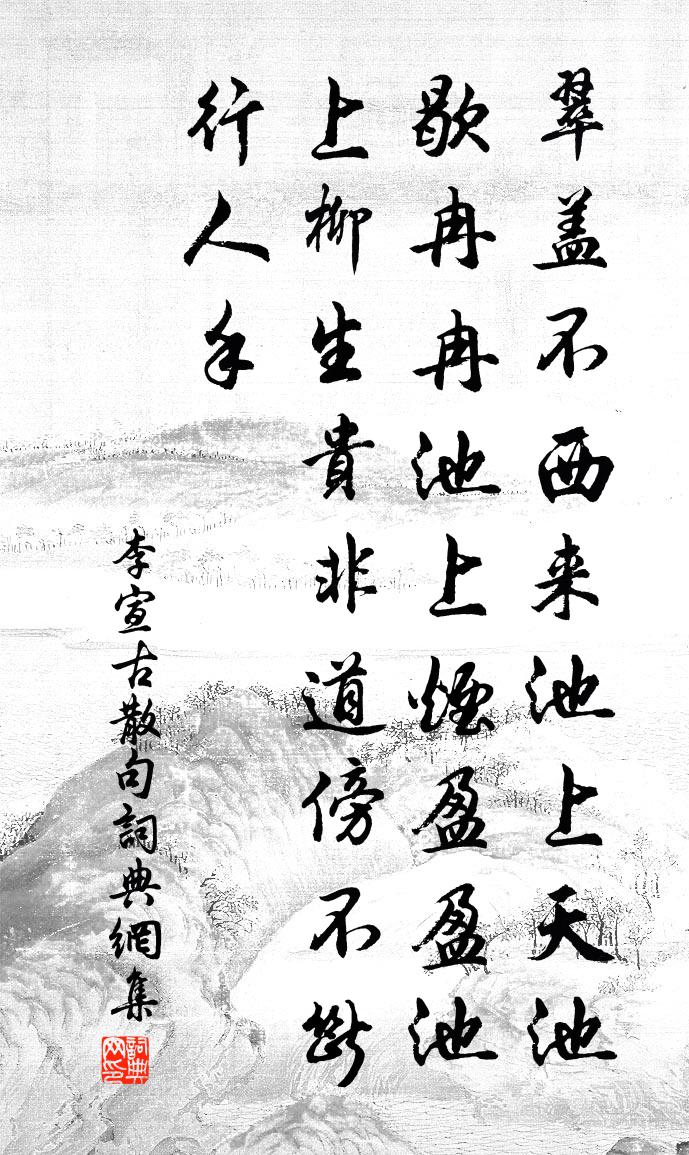 翠盖不西来池上天池
歇冉冉池上煙盈盈池
上柳生貴非道傍不斷
行人手
李宣古散句詞典網集
詞典网印